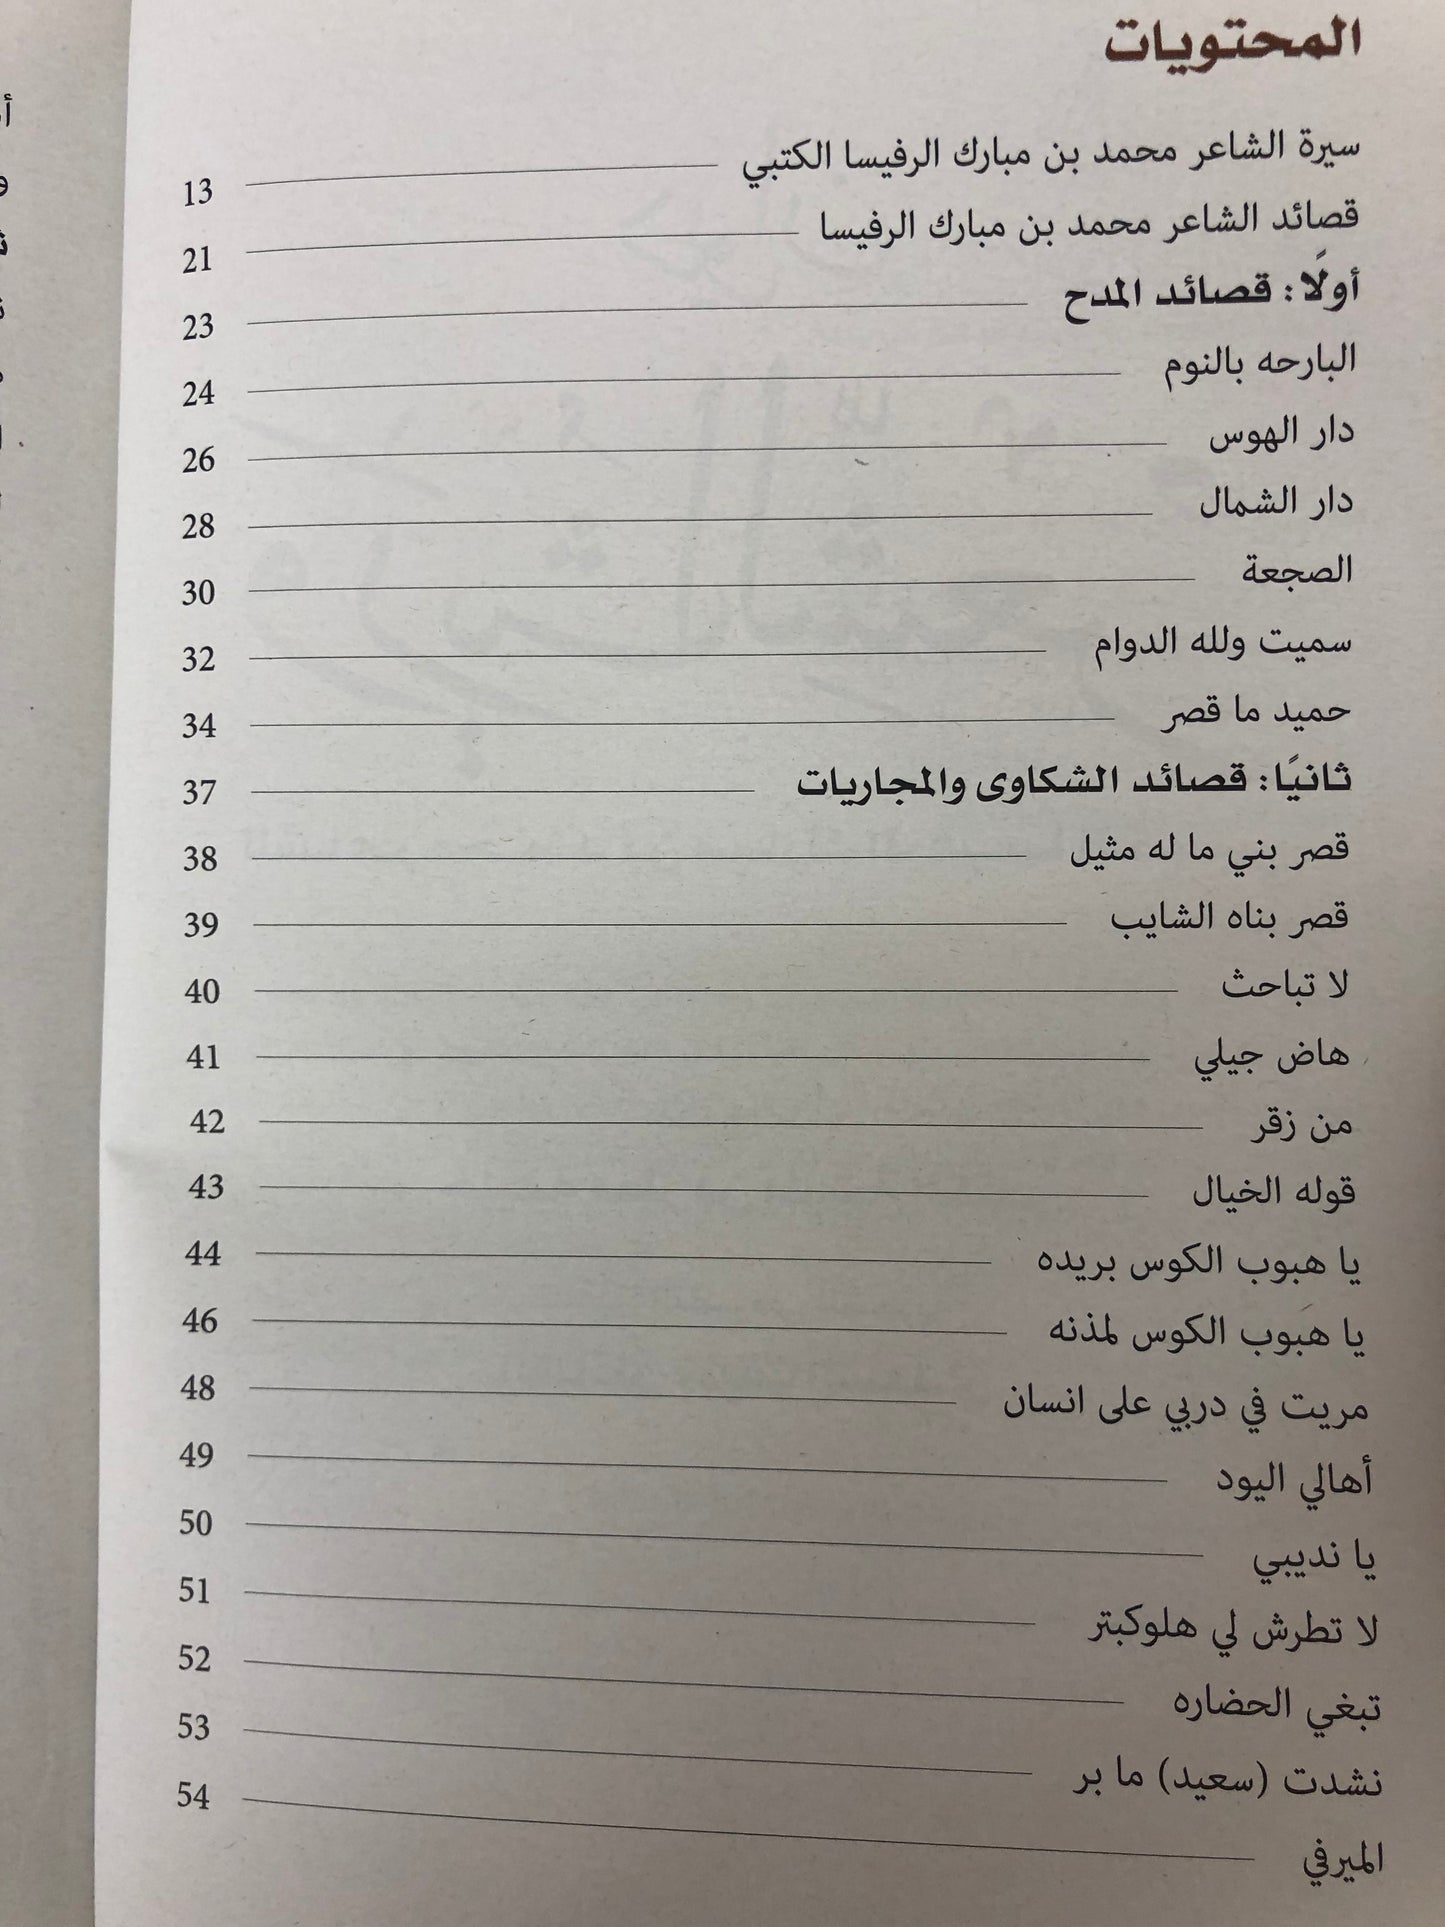 المحتويات
سيرة الشاعر محمد بن مبارك الرفيسا الكتبي 13
قصائد الشاعر محمد بن مبارك الرفيسا 21
أولًا: قصائد المدح 23
البارحه بالنوم 24
دار الهوس 26
دار الشمال 28
الصجعة 30
سميت ولله الدوام 32
حميد ما قصر 34
ثانيًا: قصائد الشكاوى والمجاريات 37
قصر بني ما له مثيل 38
قصر بناه الشايب 39
لا تباحث 40
هاض جيلي 41
من زقر 42
قوله الخيال 43
يا هبوب الكوس بريده 44
يا هَبوب الكوس لمذنه 46
مريت في دربي على انسان 48
أهالي اليود 49
يا نديبي 50
لا تطرش لي هلوكبتر 51
تبغي الحضاره 52
نشدت (سعيد) ما بر 53
الميرفي 54